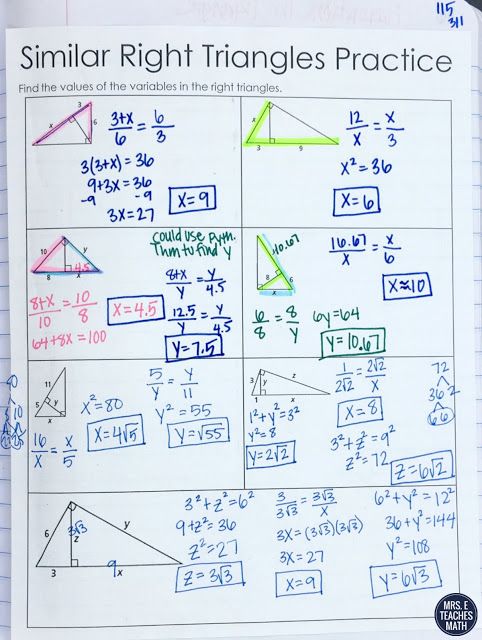 115
311
Similar Right Triangles Practice
Find the values of the variables in the right triangles.
3
x
6
3+x/6 = 6/3
3(3+x) = 36
9+3x = 36
-9 -9
3x = 27
x=9
x
3
9
12/x = x/3
x² = 36
x=6
10
y
8
x
4.5
could use Pyth.
Thm to find y
8+x/10 = 10/8
64+8x = 100
x=4.5
8+x/y = y/4.5
12.5/y = y/4.5
y=7.5
10.67
8
6
x
16.67/x = x/6
x≈10
6/8 = 8/y
6y=64
y=10.67
11
5
y
x
16/x = x/5
x²=80
x=4√5
5/y = y/11
y² = 55
y=√55
3
y
z
1
x
1²+y²=3²
y²=8
y=2√2
1/2√2 = 2√2/x
x=8
3²+z²=9²
z²=72
z=6√2
72
36 2
6 6
6
3√3
z
y
3
9
x
3²+z²=6²
9+z²=36
z²=27
z=3√3
3/3√3 = 3√3/x
3x=(3√3)(3√3)
3x=27
x=9
6²+y²=12²
36+y²=144
y²=108
y=6√3
MRS. E
TEACHES
MATH